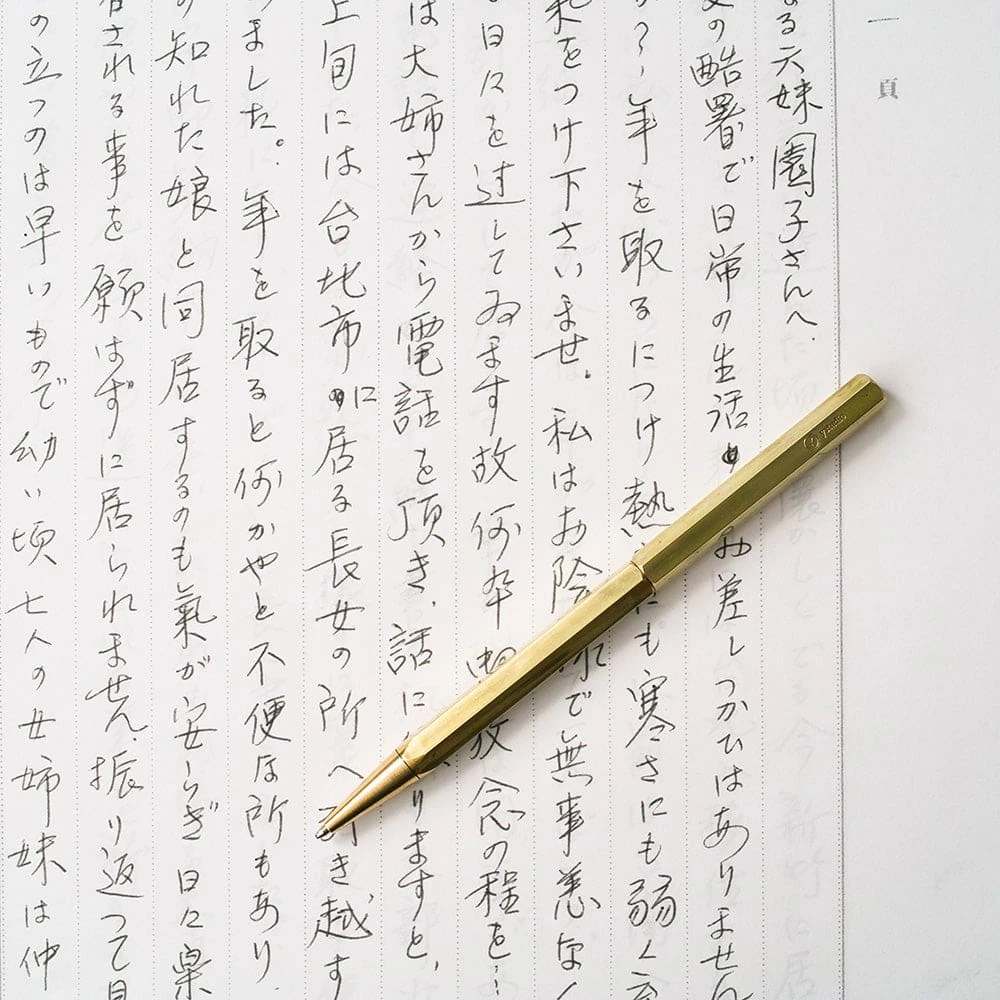 一頁
る六妹園子さんへ.
の酷暑で日常の生活 お差しつかひはありません
か?、年を取るにつけ熱 にも寒さにも弱く
気をつけ下さいませ。私はお陰 で無事恙なく
日々を过してゐます故何卆 放念の程を…
は大姉さんから電話を頂き、話に りますと、
上旬には台北市に居る長女の所へ き越す
ました。年を取ると何かやと不便な所もあり.
の知れた娘と同居するのも氣が安らぎ日々
される事を願はずに居られません、振り返って見
の立つのは早いもので幼い頃七人の女姉妹は仲
ystudio